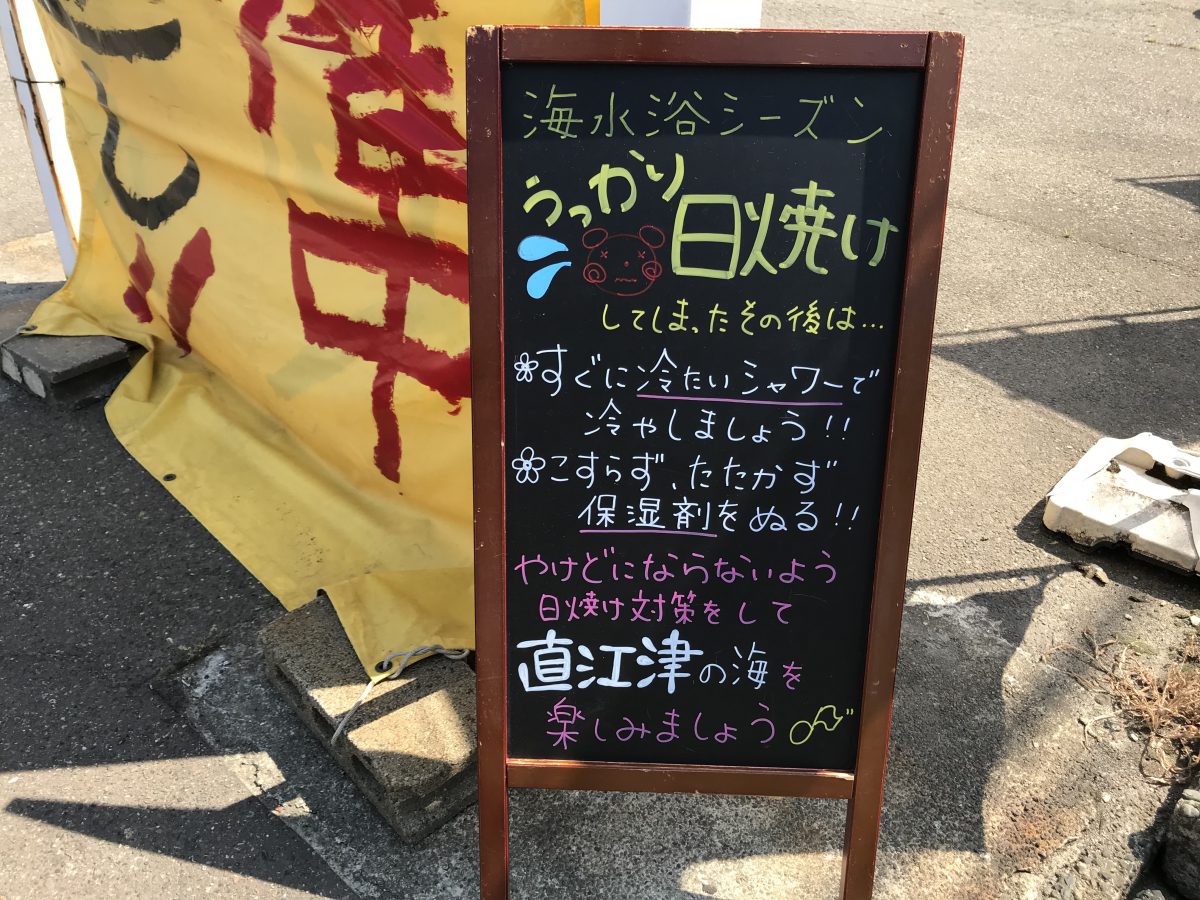 海水浴シーズン
うっかり日焼け
してしまったその後は…
すぐに冷たいシャワーで
冷やしましょう!!
こすらず、たたかず
保湿剤をぬる!!
やけどにならないよう
日焼け対策をして
直江津の海を
楽しみましょう